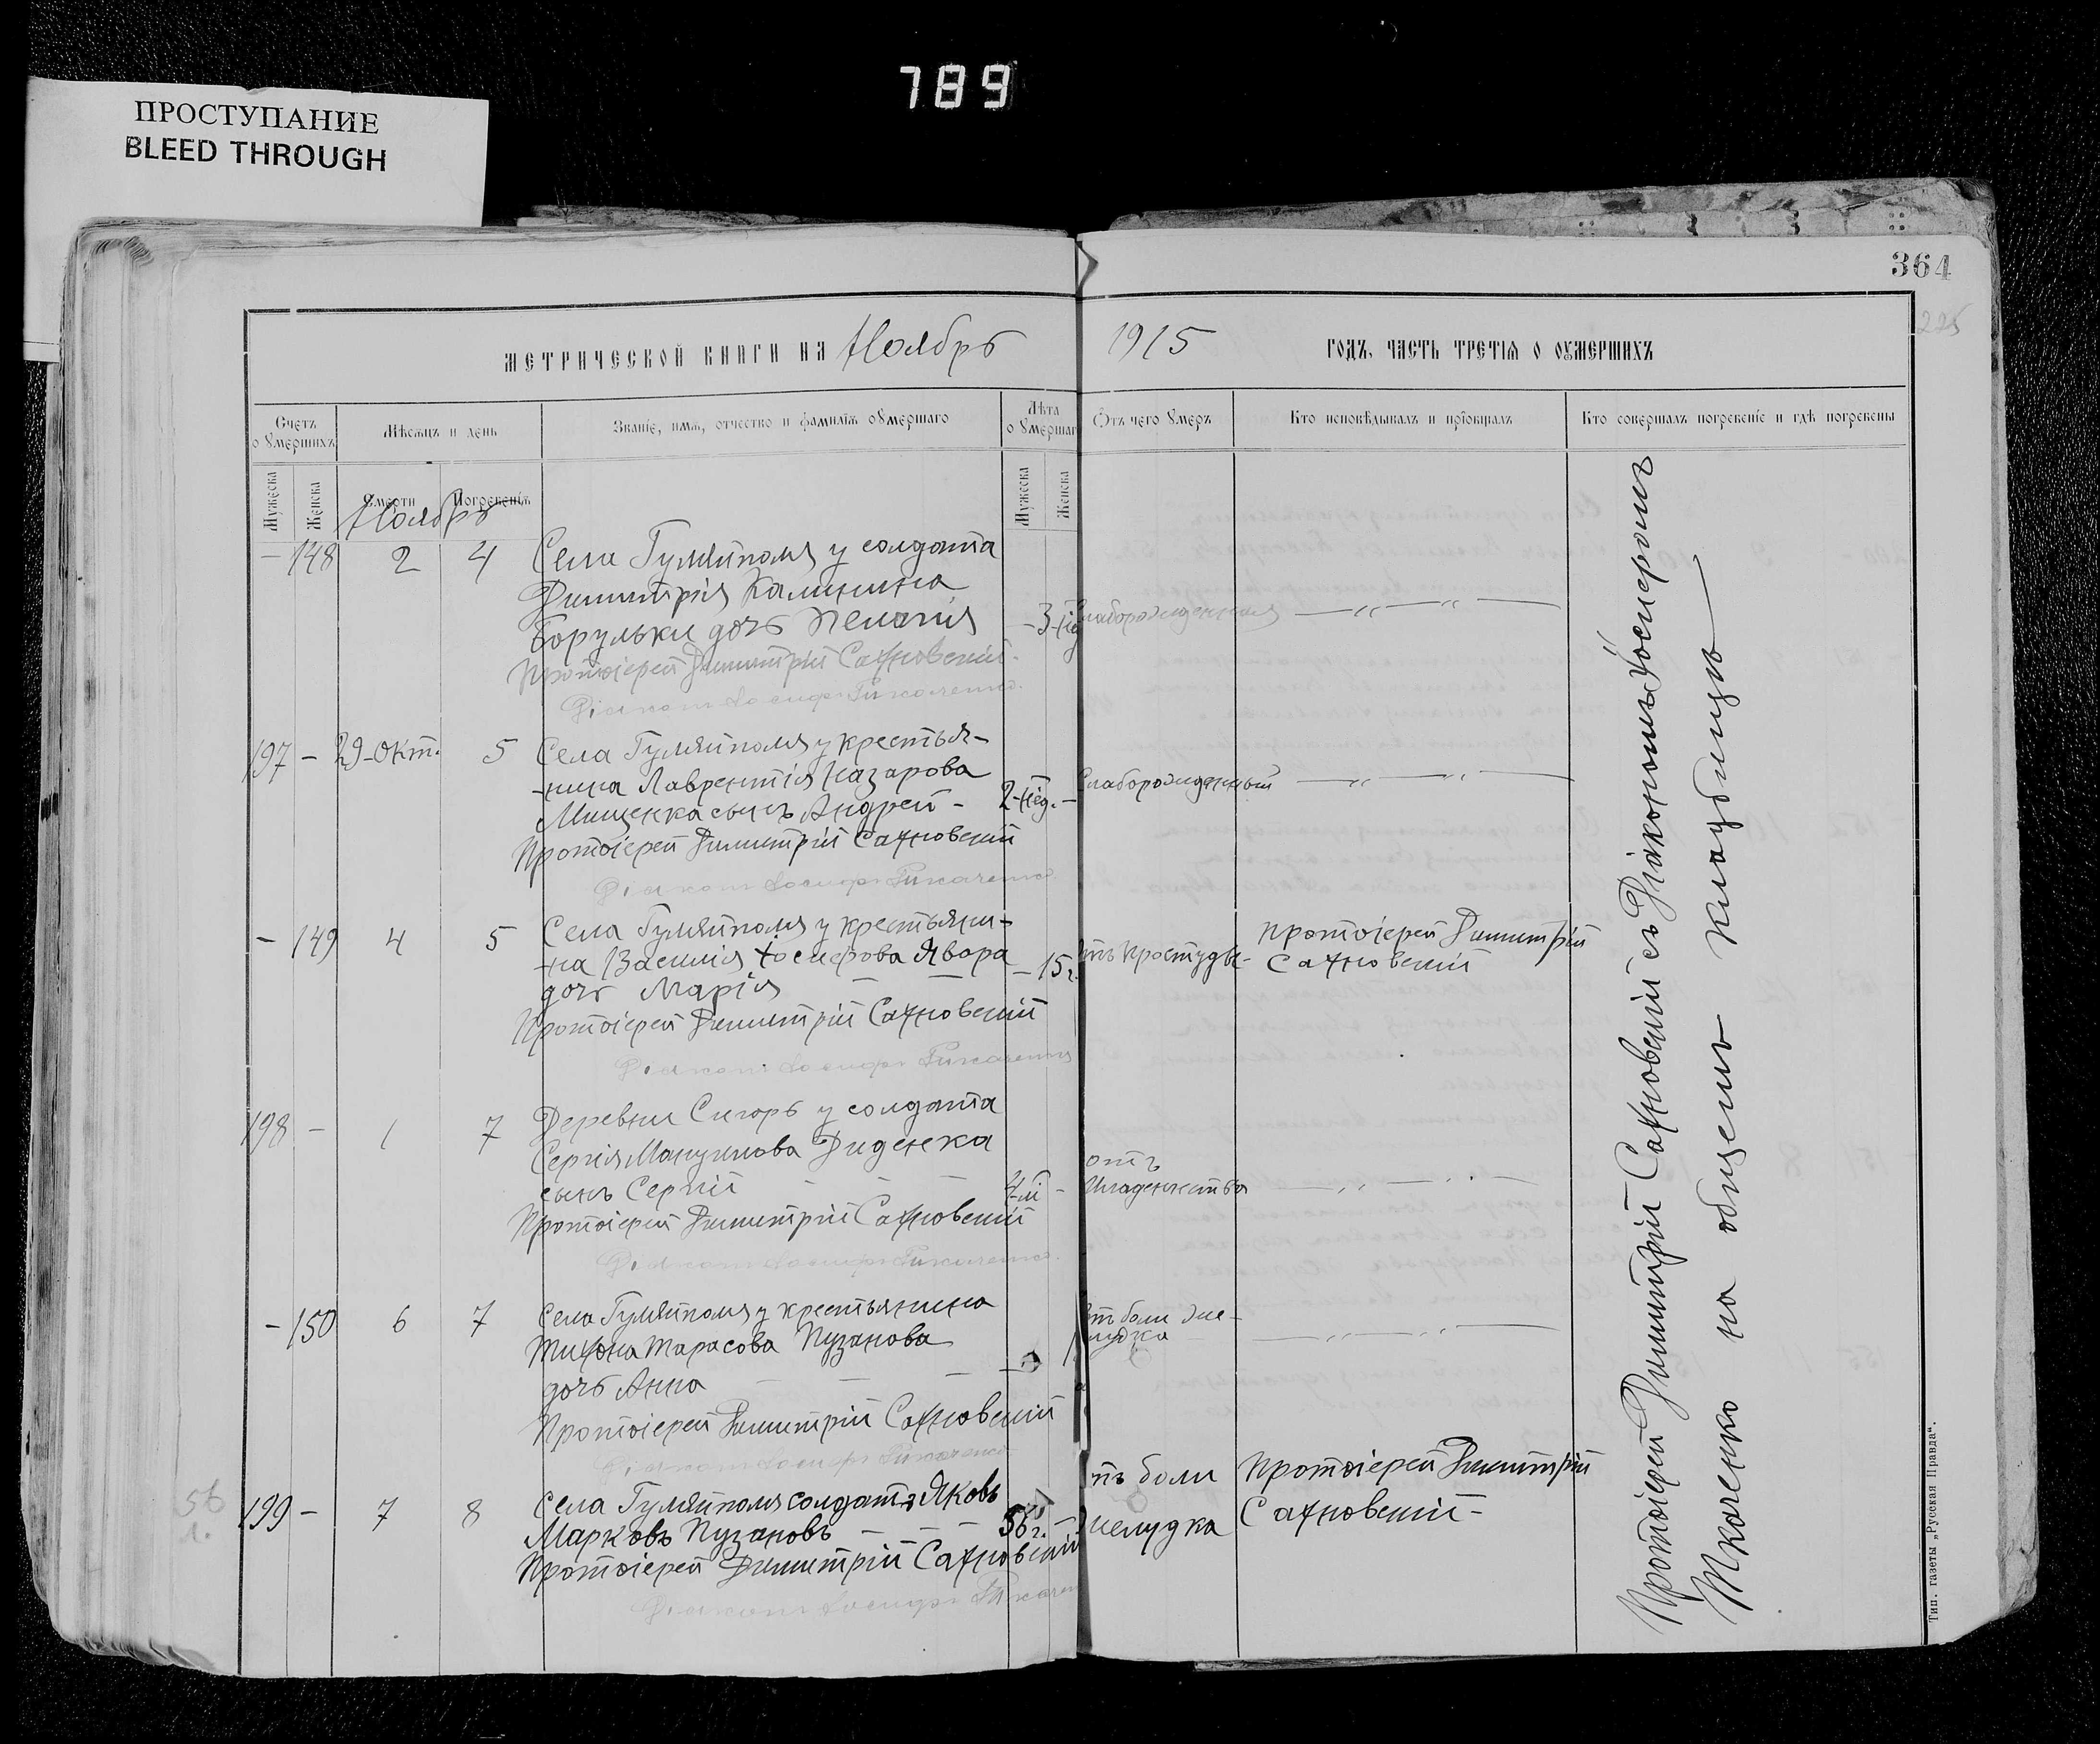 789
ПРОСТУПАНИЕ
BLEED THROUGH
364
225
МЕТРИЧЕСКОЙ КНИГИ НА Ноябрь 1915 ГОДЪ, ЧАСТЬ ТРЕТІЯ О ОУМЕРШИХЪ
Счетъ о Умершихъ
Мѣсяцъ и день
Званіе, имя, отчество и фамилія оУмершаго
Лѣта оУмершаг
Отъ чего Умеръ
Кто исповѣдывалъ и пріобщалъ
Кто совершалъ погребеніе и гдѣ погребены
Мужеска
Женска
Смерти
Погребенія
Мужеска
Женска
Ноябрь
— 148 2 4 Села Гуляйполя у солдата
Димитрія Калинина
Борульки дочь Пелагія — 3 нед Слаборожденная — „ — „ —
Протоіерей Димитрій Сахновскій.
Діаконъ Іосифъ Ткаченко.
197 — 29 Окт. 5 Села Гуляйполя у крестья-
-нина Лаврентія Назарова
Мищенка сынъ Андрей — 2 нед. — Слаборожденный — „ — „ —
Протоіерей Димитрій Сахновскій
Діаконъ Іосифъ Ткаченко
— 149 4 5 Села Гуляйполя у крестьяни-
-на Василія Іосифова Явора
дочь Марія — — — 15 г. отъ простуды — Протоіерей Димитрій
Сахновскій
Протоіерей Димитрій Сахновскій
Діаконъ Іосифъ Ткаченко
198 — 1 7 Деревни Сигорь у солдата
Сергія Мануилова Диденка
сынъ Сергій — — — 4 м — отъ
младенчества — „ — „ —
Протоіерей Димитрій Сахновскій
Діаконъ Іосифъ Ткаченко.
— 150 6 7 Села Гуляйполя у крестьянина
Тихона Тарасова Пузанова
дочь Анна — — — — отъ боли же-
лудка — „ — „ —
Протоіерей Димитрій Сахновскій
Діаконъ Іосифъ Ткаченко
56
л.
199 — 7 8 Села Гуляйполя солдатъ Яковъ
Марковъ Пузановъ — — — 56 г. — отъ боли
желудка
Протоіерей Димитрій
Сахновскій —
Протоіерей Димитрій Сахновскій
Діаконъ Іосифъ Ткачен
Протоіерей Димитрій Сахновскій съ Діакономъ Іосифомъ
Ткаченко на общемъ кладбищѣ —
Тип. газеты „Русская Правда“.